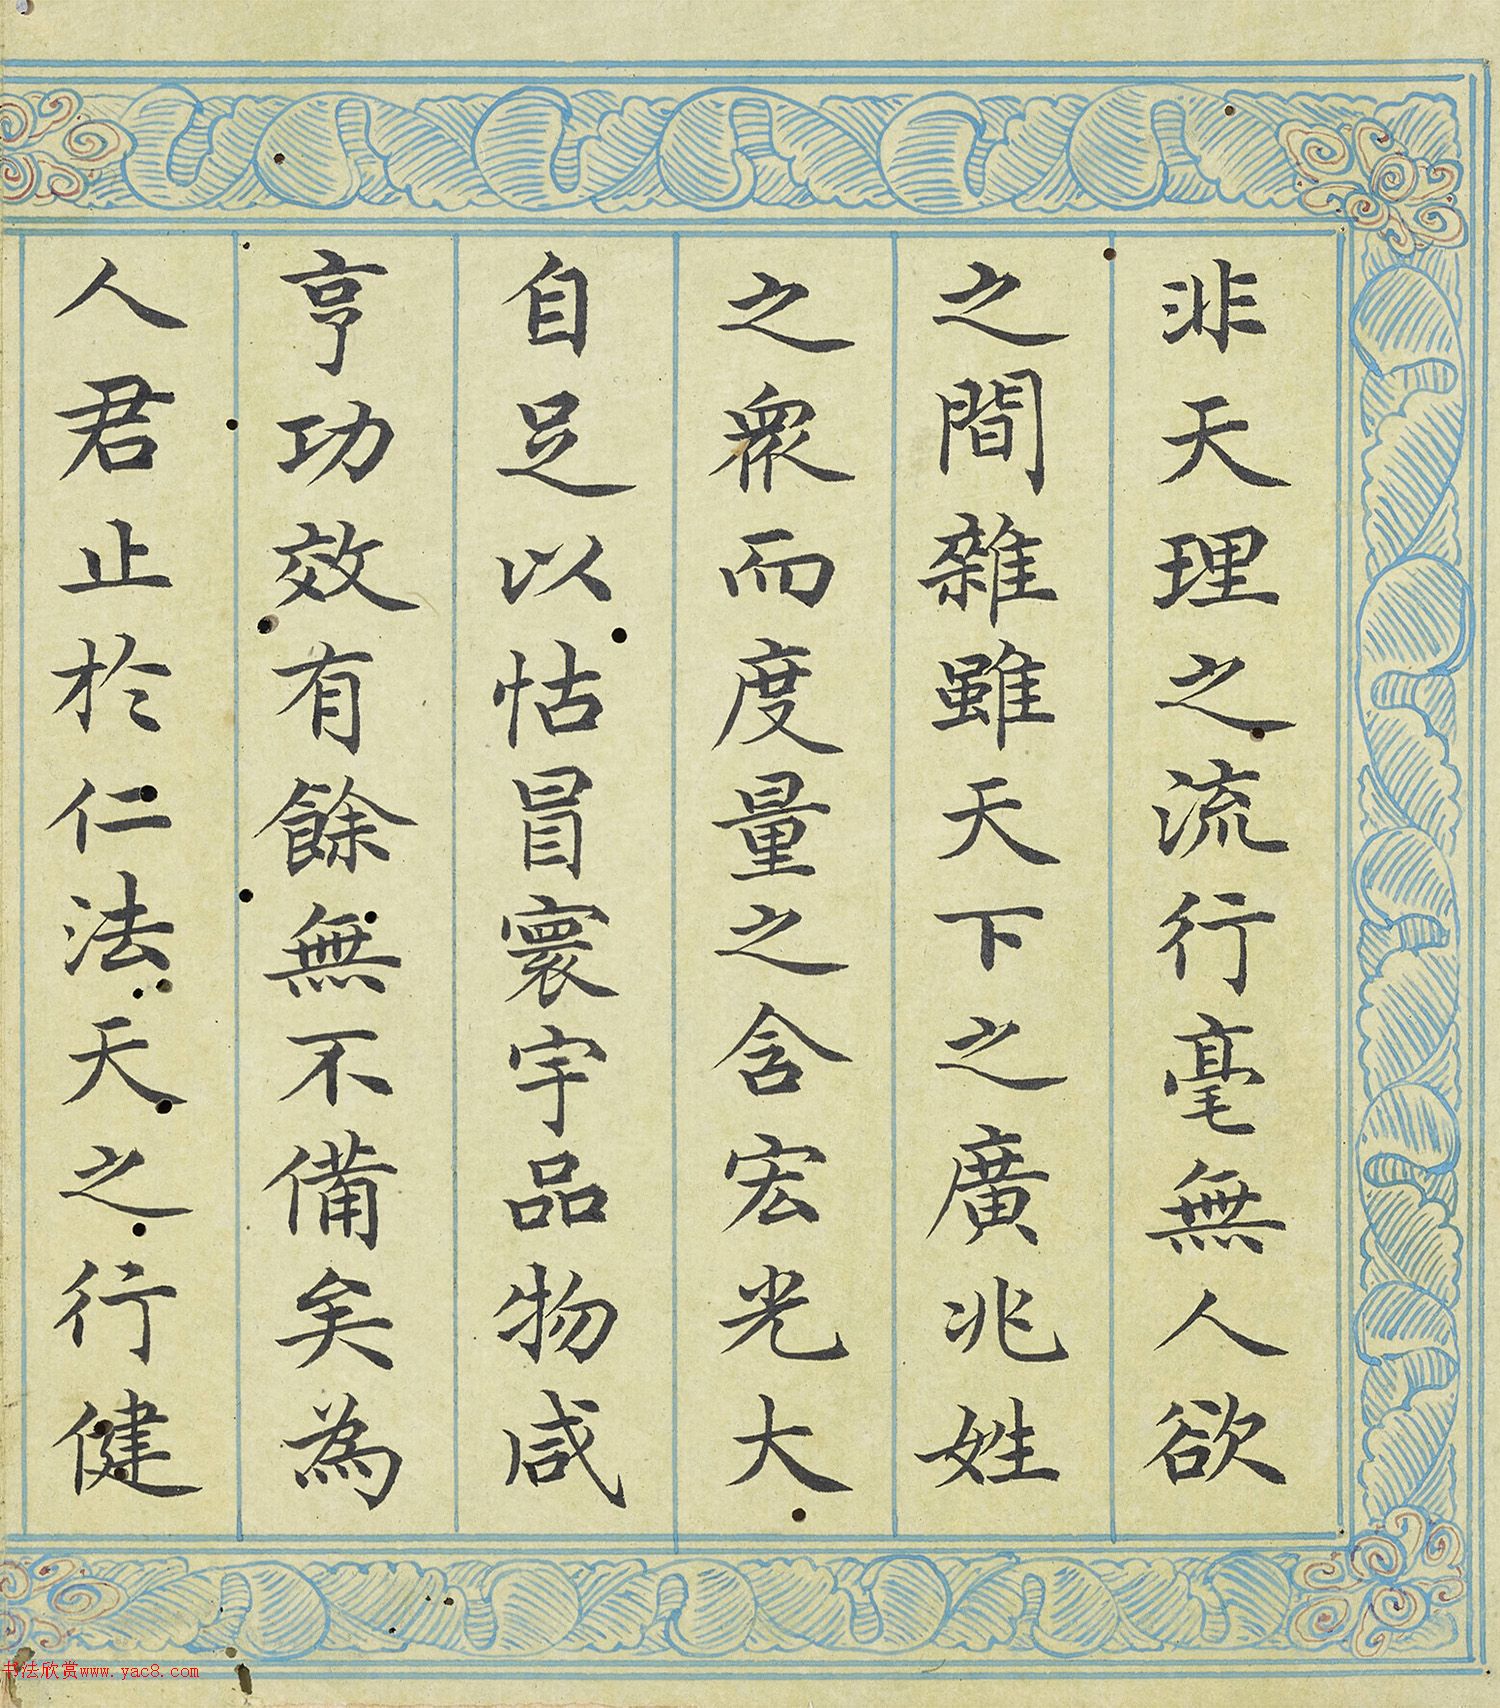 非天理之流行毫無人欲
之間雜雖天下之廣兆姓
之衆而度量之含宏光大
自足以怙冒寰宇品物咸
亨功效有餘無不備矣為
人君止於仁法天之行健
书法欣赏www.yac8.com